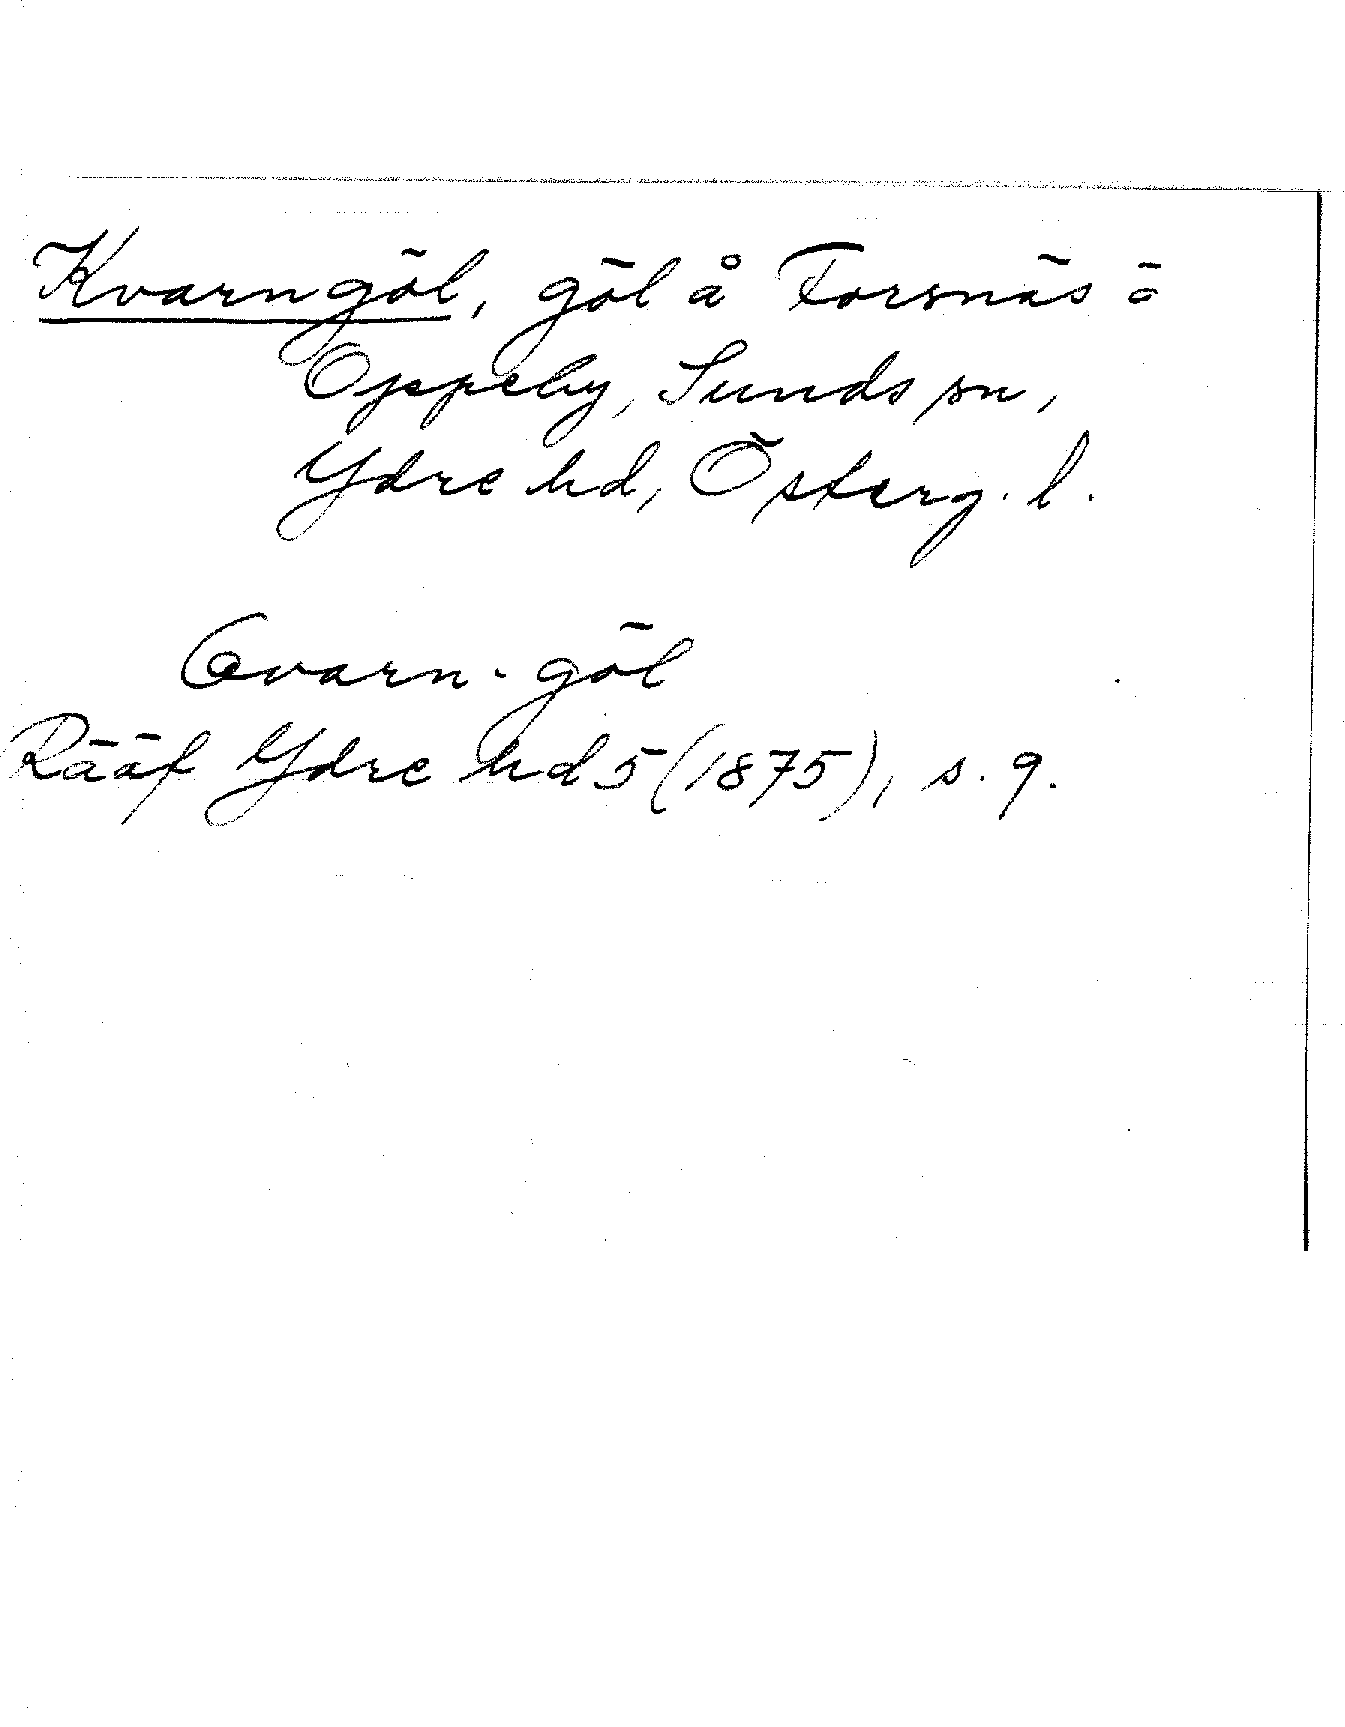 Kvarngöl, göl å Forsnäs ö
Oppeby, Sunds sn,
Ydre hd, Österg. l.
Qvarn-göl
Rääf Ydre hd 5 (1875), s. 9.